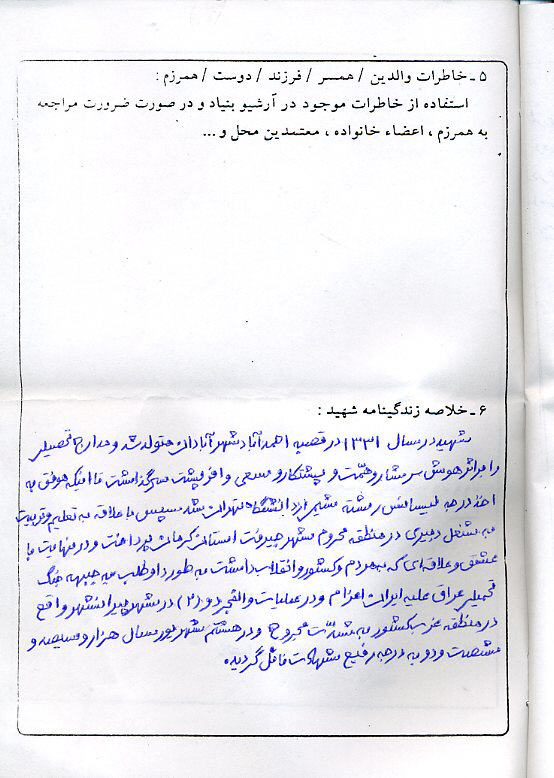 ۵ ـ خاطرات والدین / همسر / فرزند / دوست / همرزم :
استفاده از خاطرات موجود در آرشیو بنیاد و در صورت ضرورت مراجعه
به همرزم ، اعضاء خانواده ، معتمدین محل و ...
۶ ـ خلاصه زندگینامه شهید :
شهید در سال ۱۳۳۱ در قصبه احمدآباد شهر آبادان متولد شد و مدارج تحصیلی
را براثر هوش سرشار و همت و پشتکار و سعی وافر پشت سر گذاشت تا اینکه موفق به
اخذ درجه لیسانس رشته شیمی از دانشگاه تهران شد سپس با علاقه به تعلیم و تربیت
به شغل دبیری در منطقه محروم شهر جیرفت استان کرمان پرداخت و در نهایت با
عشق و علاقه‌ای که به مردم و کشور و انقلاب داشت به طور داوطلب به جبهه جنگ
تحمیلی عراق علیه ایران اعزام و در عملیات والفجر دو (۲) در شهر پیرانشهر واقع
در منطقه غرب کشور به شدت مجروح و در هشتم شهریور سال هزار و سیصد و
شصت و دو به درجه رفیع شهادت نائل گردید.